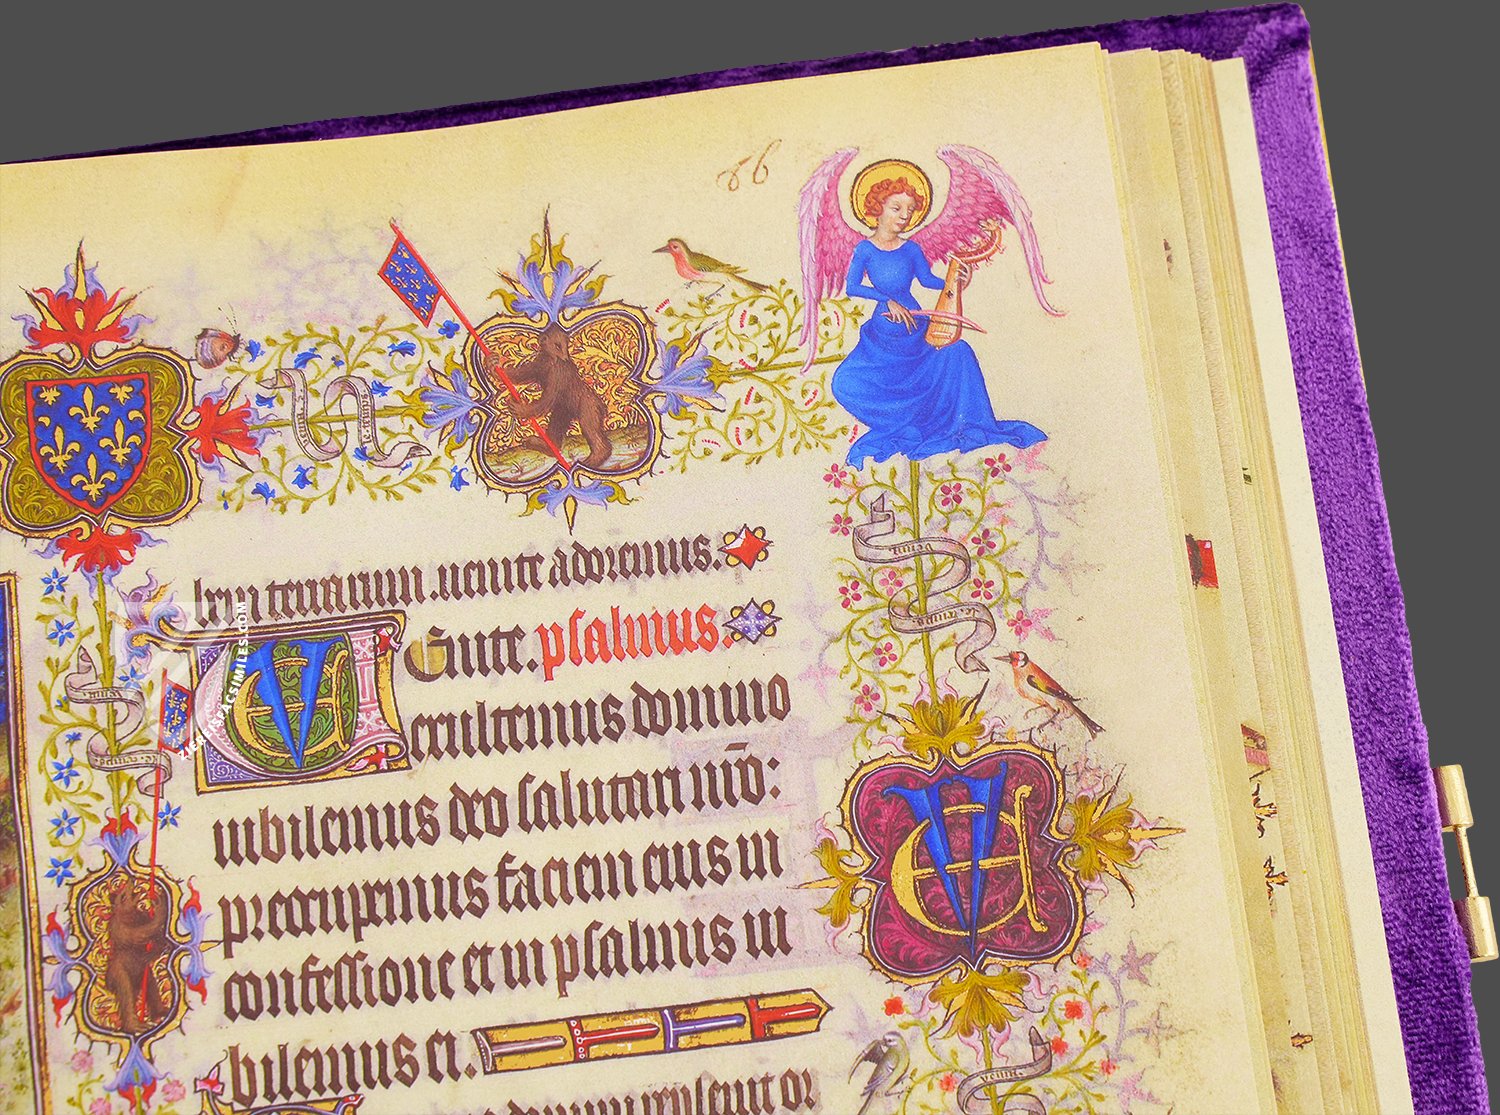 86
terrarum. uenite adoremus.
Enite. psalmus.
exultemus domino
iubilemus deo salutari nr̄o:
preocupemus faciem eius in
confessione et in psalmis iu
bilemus ei.
ZIEREIS FACSIMILES.COM